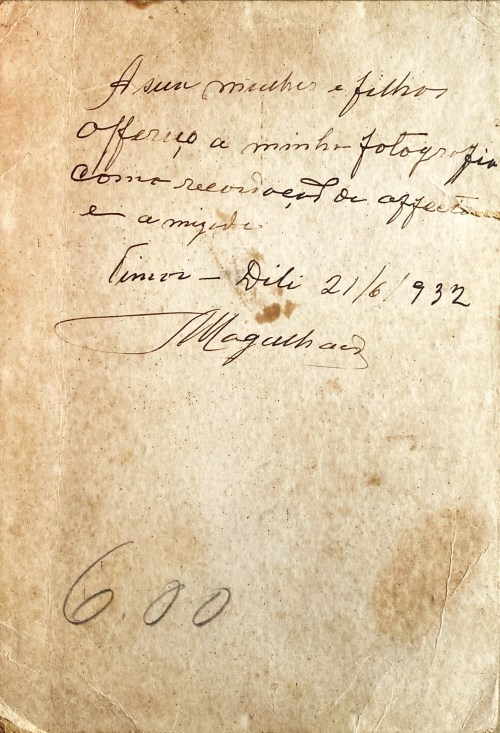 A sua mulher e filhos
offereço a minha fotografia
como recordação de affecto
e amizade
Timor - Dili 21/6/932
JMagalhães
6.00